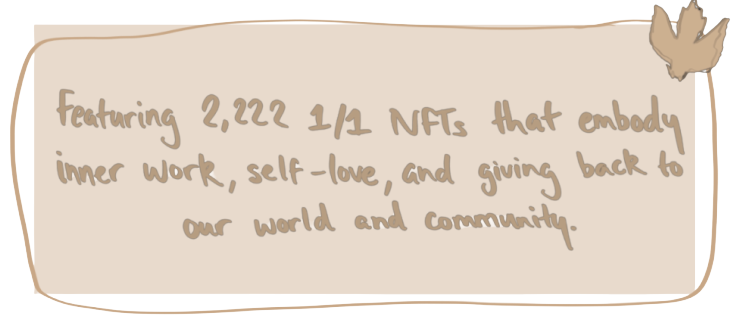 Featuring 2,222 1/1 NFTs that embody
inner work, self-love, and giving back to
our world and community.